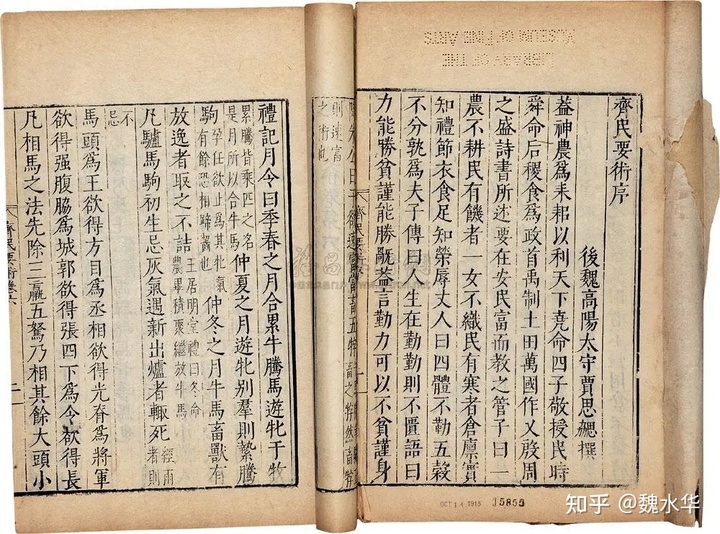 LIBRARY OF THE
MUSEUM OF FINE ARTS
齊民要術序
後魏高陽太守賈思勰撰
葢神農爲耒耜以利天下堯命四子敬授民時
舜命后稷食爲政首禹制土田萬國作乂殷周
之盛詩書所述要在安民富而教之管子曰一
農不耕民有饑者一女不織民有寒者倉廩實
知禮節衣食足知榮辱丈人曰四體不勤五穀
不分孰爲夫子傳曰人生在勤勤則不匱語曰
力能勝貧謹能勝禍葢言勤力可以不貧謹身
則速富
之術也
禮記月令曰季春之月合累牛騰馬遊牝于牧
累騰皆乘匹之名是月所以合牛馬仲夏之月遊牝别羣則縶騰
駒孕任欲止爲其牝氣有餘恐相蹄齧也仲冬之月牛馬畜獸有
放逸者取之不詰王居明堂禮曰冬命農畢積聚繼放牛馬
凡驢馬駒初生忌灰氣遇新出爐者輒死經雨者則
不忌
馬頭爲王欲得方目爲丞相欲得光脊爲將軍
欲得强腹脇爲城郭欲得張四下爲令欲得長
凡相馬之法先除三羸五駑乃相其餘大頭小
齊民要術卷六
OCT 14 1915
J5853
知乎 @魏水华